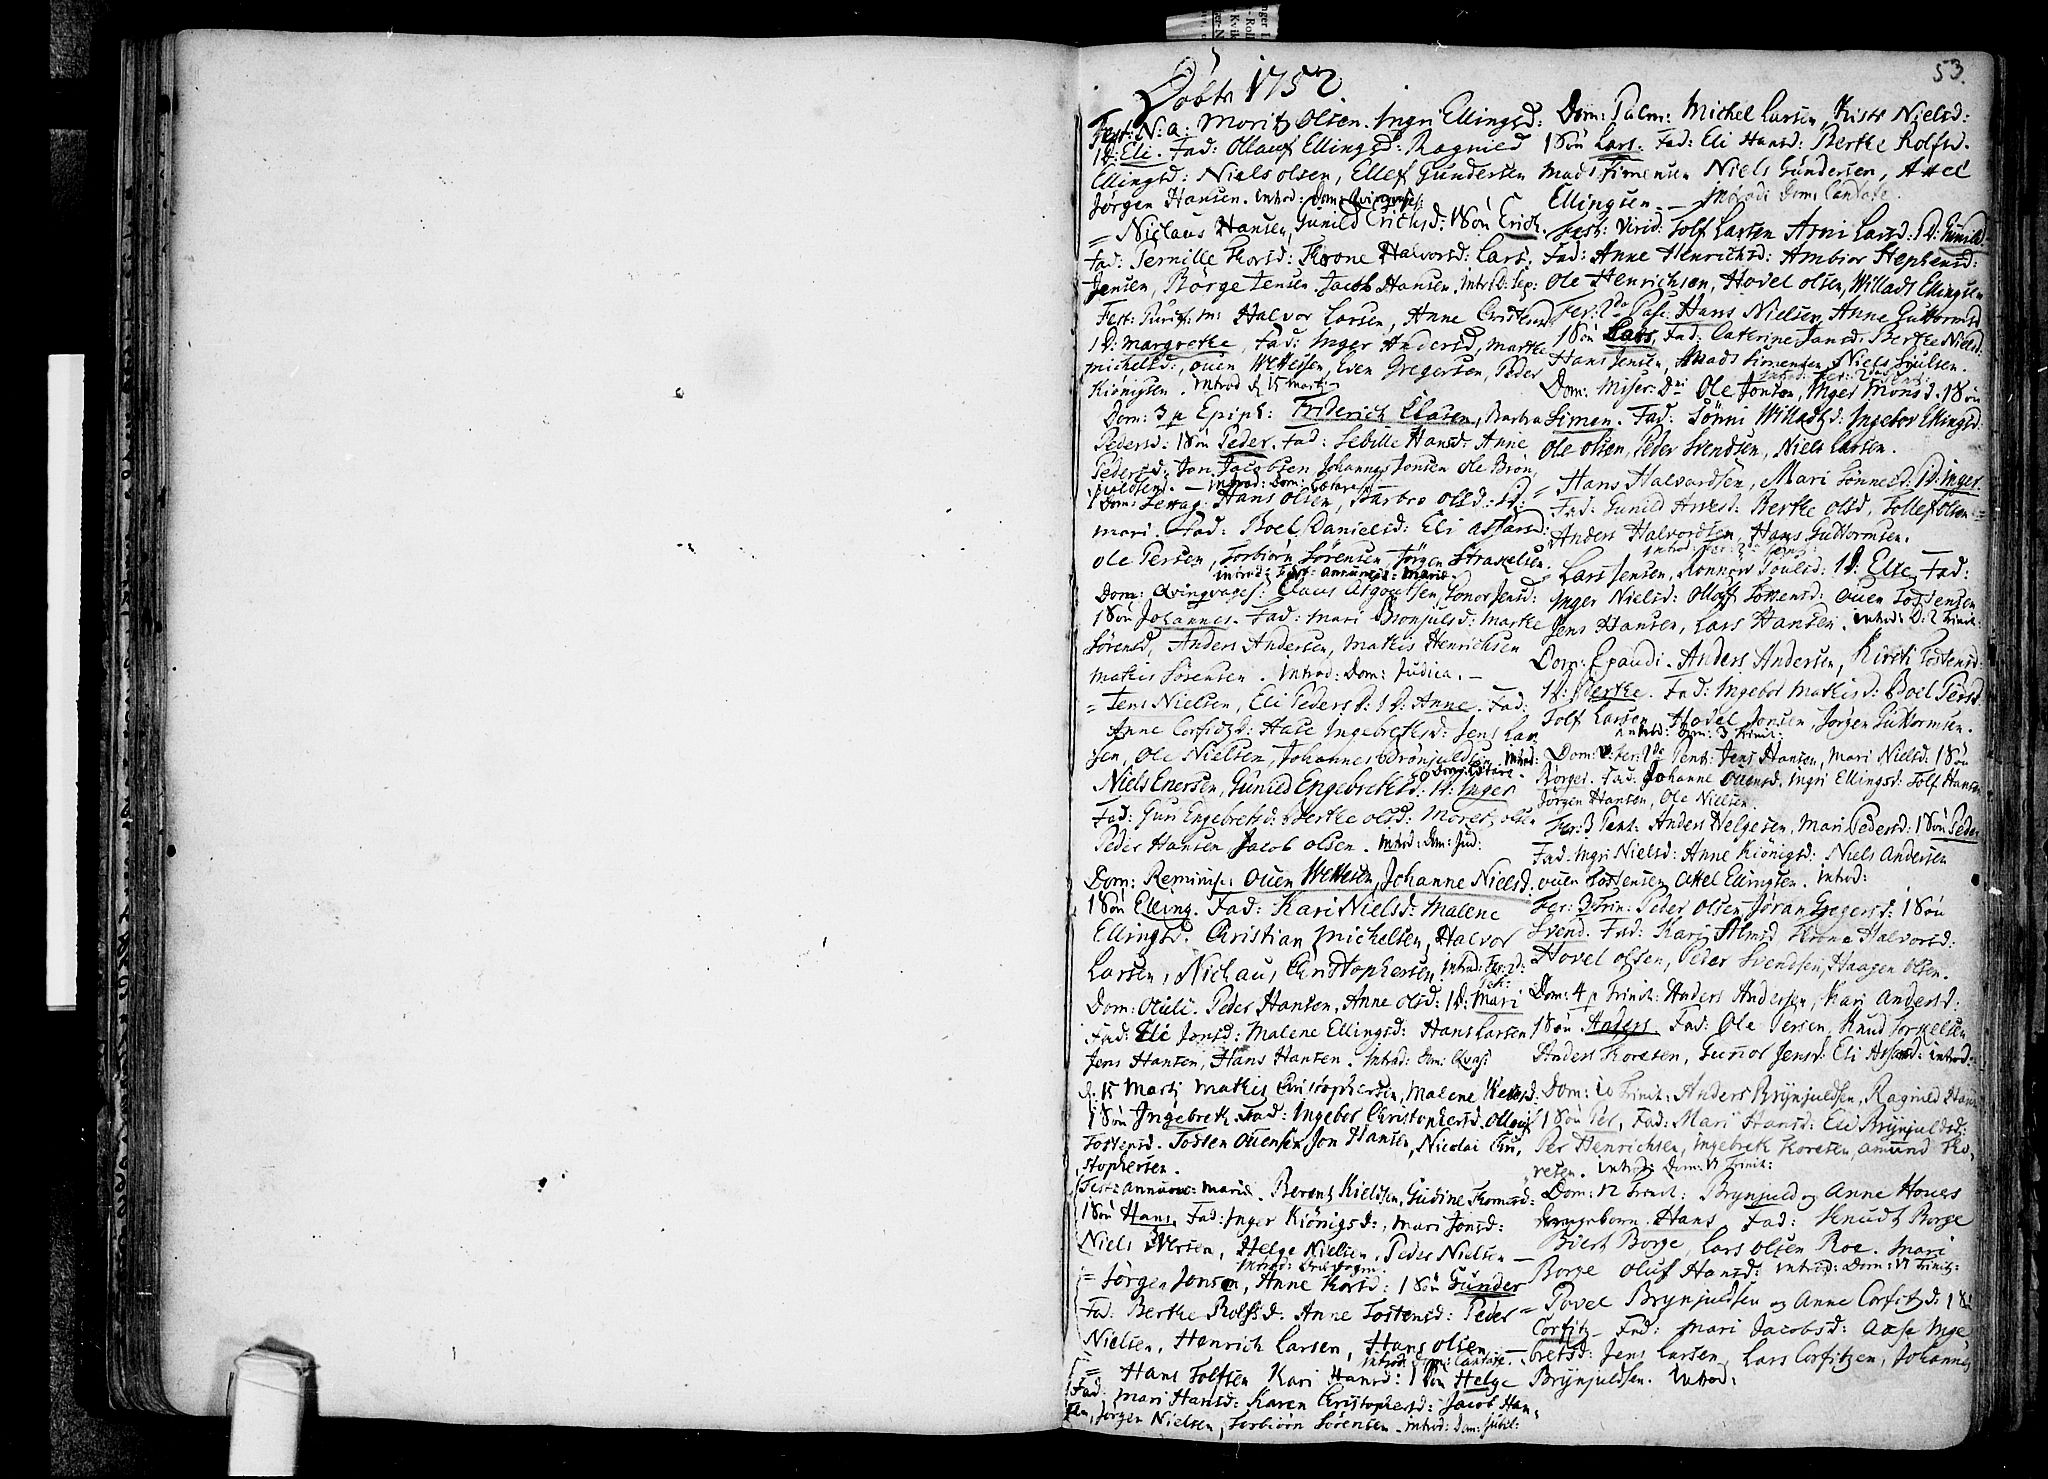 53.
Döbte 1752
Fest: N: a: Moritz Olsen. Ingri Ellingsd:
1 D: Eli. Fad: Ollauf Ellingsd: Ragnild
Ellingsd: Niels olsen, Ellef Gundersen
Jörgen Hansen. introd: Dom: Qvinqvages:
= Niclaus Hansen, Gunild Erichsd: 1 Sön Erich.
Fad: Pernille Korsd: Krone Halvorsd: Lars
Jensen, Börge Jensen. Jacob Hansen. introd: Sep:
Fest: Purif: m: Halvor Larsen, Anne Cristensd
1 D: Margrethe, Fad: Inger Andersd, Marthe
michelsd:, ouen Wettesen, Even Gregersen, Peder
Kiönigsen. introd d 15 martj
Dom: 3 p Epiph: Friderich Clasen, Barbra
Pedersd: 1 Sön Peder. Fad: Sebille Hansd: Anne
Pedersd. Jon Jacobsen Johannes Jonsen ole Brön,
juldsend. introd: Dom:
Dom: Sexag: Hans olsen, Barbro olsd: 1 D:
mari. Fad: Boel Danielsd: Eli assarsd:
ole Persen, Torbiörn Sörensen, Jörgen
introd: Fest: annunciat: mariæ
Dom: Qvinqvages: Claus Asgoutsen, Gonor Jensd:
1 Sön Johannes. Fad: mari Bronjulsd: marthe
Sörensd, Anders Andersen, Mathis Henrichsen
mathis Sörensen. introd: Dom: Judica.
= Jens Nielsen, Eli Pedersd: 1 D: Anne. Fad:
Anne Corfidzd: Hase Ingebrethsd: Jens Lar
sen, Ole Nielsen, Johannes Brönjuldsen introd:
Niels Enersen, Gunild Engebrethsd: 1 D: Inger
Fad: Guri Engebretsd: Berthe olsd: Moretz olsen
Peder Hansen Jacob olsen. introd: Dom: Jud:
Dom: Reminisc: ouen Wettesen, Johanne Nielsd.
1 Sön Elling. Fad: Kari Nielsd: Malene
Ellingsd. Christian michelsen, Halvor
Larsen, Niclaus Christophersen. introd: Fer: 2d:
Dom: Oculi. Peder Hansen, Anne olsd: 1 D: Mari
Fad: Eli Jonsd: Malene Ellingsd: Hans Larsen
Jens Hansen, Hans Hansen. introd: Dom: Qvasi
d. 15 Martj mathis Cristophersen, Malene Wettesd:
1 Sön Ingebreth. Fad: Ingebor Christophersd. Ollauf
Tostensd. Tosten ouensen Jon Hansen, Nicolai Cri,
stophersen.
Fest: annunc: mariæ. Berent Kieldsen, Gudine Thomasd:
1 Sön Hans. Fad: Inger Kiönigsd:, mari Jonsd:
Niels Iversen, Helge Nielsen. Peder Nielsen
= Jörgen Jonsen, Anne Korsd: 1 Sön Gunder
Fad: Berthe Rolfsd. Anne Tostensd: Peder
Nielsen, Henrich Larsen, Hans olsen
introd: Dom: Cantate.
= Hans Tolfsen Kari Hansd: 1 Sön Helge
Fad: mari Hansd: Karen Christophersd: Jacob Han-
sen, Jörgen Nielsen, Torbiörn Sörensen. introd: Dom: Jubil:
Dom: Palm: Michel Larsen, Kistr Nielsd:
1 Sön Lars. Fad: Eli Hansd: Berthe Rolfsd.
mads Simensen Niels Gundersen, Axel
Ellingsen. introd: Dom: Cantate.
Fest: Virid: Tolf Larsen Arni Larsd: 1 D: Gunild
Fad: Anne Henrichsd: Ambior Stephensd:
Ole Henrichsen, Hovel olsen, Willads Ellingsen
Fer: 2da Pasc: Hans Nielsen, Anne Guttormsd
1 Sön Lars, Fad: Caterine Jansd: Berthe Nielsd:
Hans Jensen, Mads Simensen, Niels Siulsen.
Dom: Miser: Dni Ole Jonsen, Inger Monsd: 1 Sön
Simen. Fad: Sönni Willadsd: Ingebor Ellingsd:
Ole olsen, Peder Svendsen, Niels Larsen.
= Hans Halvordsen, Mari Sönnesd: 1 D: Inger
Fad: Gunild Arvesd: Berthe olsd, Tollef olsen
Anders Halvordsen, Hans Guttormsen.
Lars Jensen, Ronnow Poulsd: 1 D: Else, Fad:
Inger Nielsd: Olloff Tostensd: ouen Tostensen
Jens Hansen, Lars Hansen. introd: D: 2 Trinit:
Dom: Exaudi. Anders Andersen, Kiersti Tostensd:
1 D: Berthe. Fad: Ingebor Mathisd: Boel Persd
Tolf Larsen, Hovel Jonsen Jörgen Guttormsen.
introd: Dom: 3 Trinit:
Fer: 2de Pent: Jens Hansen, Mari Nielsd: 1 Sön
Börger. Fad: Johanne ouensd, Ingri Ellingsd: Tolf Hansen
Jörgen Hansen, Ole Nielsen.
Fer: 3 Pent: Anders Helgesen, Mari Pedersd: 1 Sön Peder
Fad. Ingri Nielsd: Anne Kiönigsd: Niels Andersen
ouen Tostensen Axel Ellingsen. introd:
Peder olsen Jöran Gregersd: 1 Sön
Svend. Fad: Kari Almsd Krone Halvorsd:
Hovel olsen, Peder Svendsen, Haagen olsen.
Dom: 4 p Trinit: Anders Andersen, Kari Andersd:
1 Sön Anders. Fad: Ole Persen, Knud Torkelsen
Anders Koresen, Gunor Jensd: Eli Assard: introd:
Dom: 10 Trinit: Anders Brynjuldsen, Ragnild Hansd
1 Sön Per, Fad: Mari Hansd: Eli Brynjuldsd:
Per Henrichsen, Ingebreth Koresen, amund Ko,
resen. introd: Dom: 17 Trinit:
Dom: 12 Trinit: Brynjuld og Anne Houes
Hans Fad: Knudt Borge
Börge, Lars olsen Roe. Mari
Borge Oluf Hansd: introd: Dom: 17 Trinit:
= Povel Brynjuldsen og Anne Corfitzd: 1 Sön
Corfitz. Fad: Mari Jacobsd: Aase Inge
bretsd: Jens Larsen, Lars Corfitzen, Johannes
Brynjuldsen. introd: